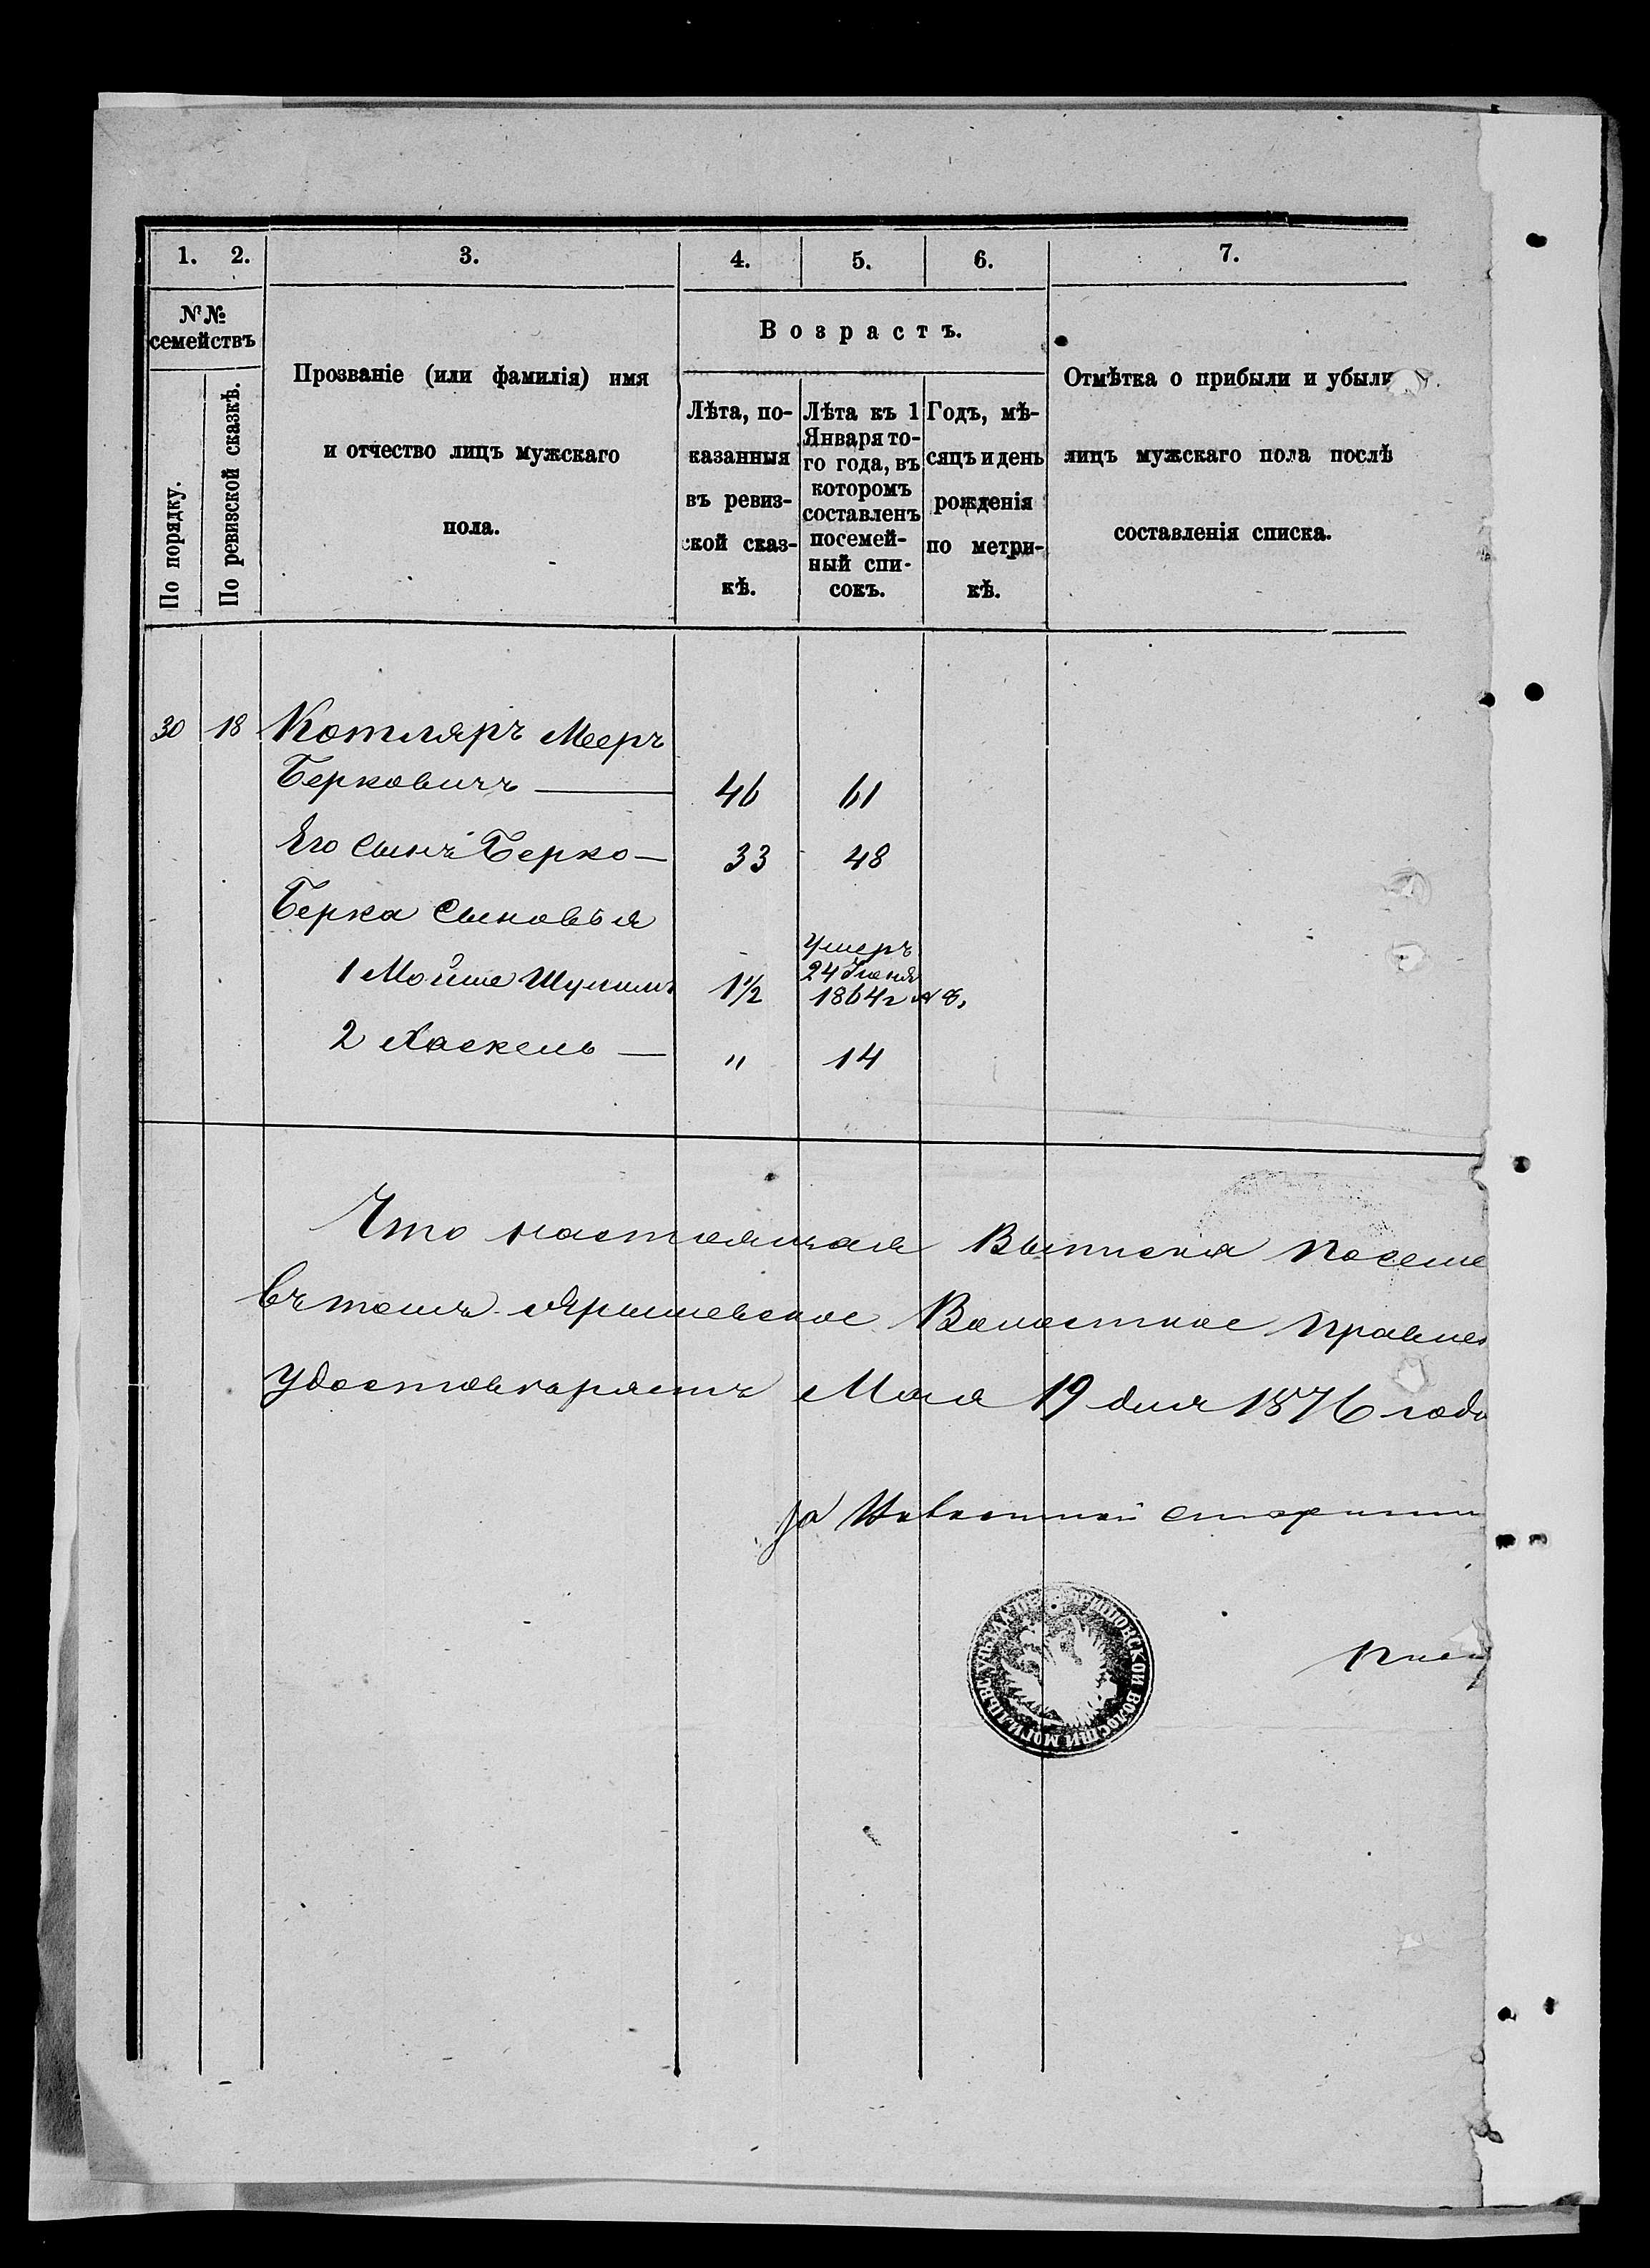 1. 2. 3. 4. 5. 6. 7.
№№
семействъ
По порядку.
По ревизской сказкѣ.
Прозваніе (или фамилія) имя
и отчество лицъ мужскаго
пола.
Возрастъ.
Лѣта, по-
казанныя
въ ревиз-
ской сказ-
кѣ.
Лѣта къ 1
Января то-
го года, въ
которомъ
составленъ
посемей-
ный спи-
сокъ.
Годъ, мѣ-
сяцъ и день
рожденія
по метри-
кѣ.
Отмѣтка о прибыли и убыли
лицъ мужскаго пола послѣ
составленія списка.
30 18 Котляръ Мееръ
Берковичъ — 46 61
Его сынъ Берко — 33 48
Берка сыновья
1 Мойше Шулимъ 1½ Умеръ
24 Іюня
1864 г
2 Хаскель — " 14
Что настоящая выписка посеме
въ томъ Яришевское Волостное Правле
удостовѣряетъ Мая 19 дня 1876 года
За Волостной Старшин
Пис
ЯРИШОВСКОЙ ВОЛОСТИ МОГИЛЬВ. УѢЗДА